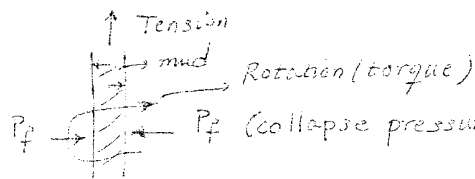 Tension
mud
Rotation (torque)
Pf Pf (collapse pressu